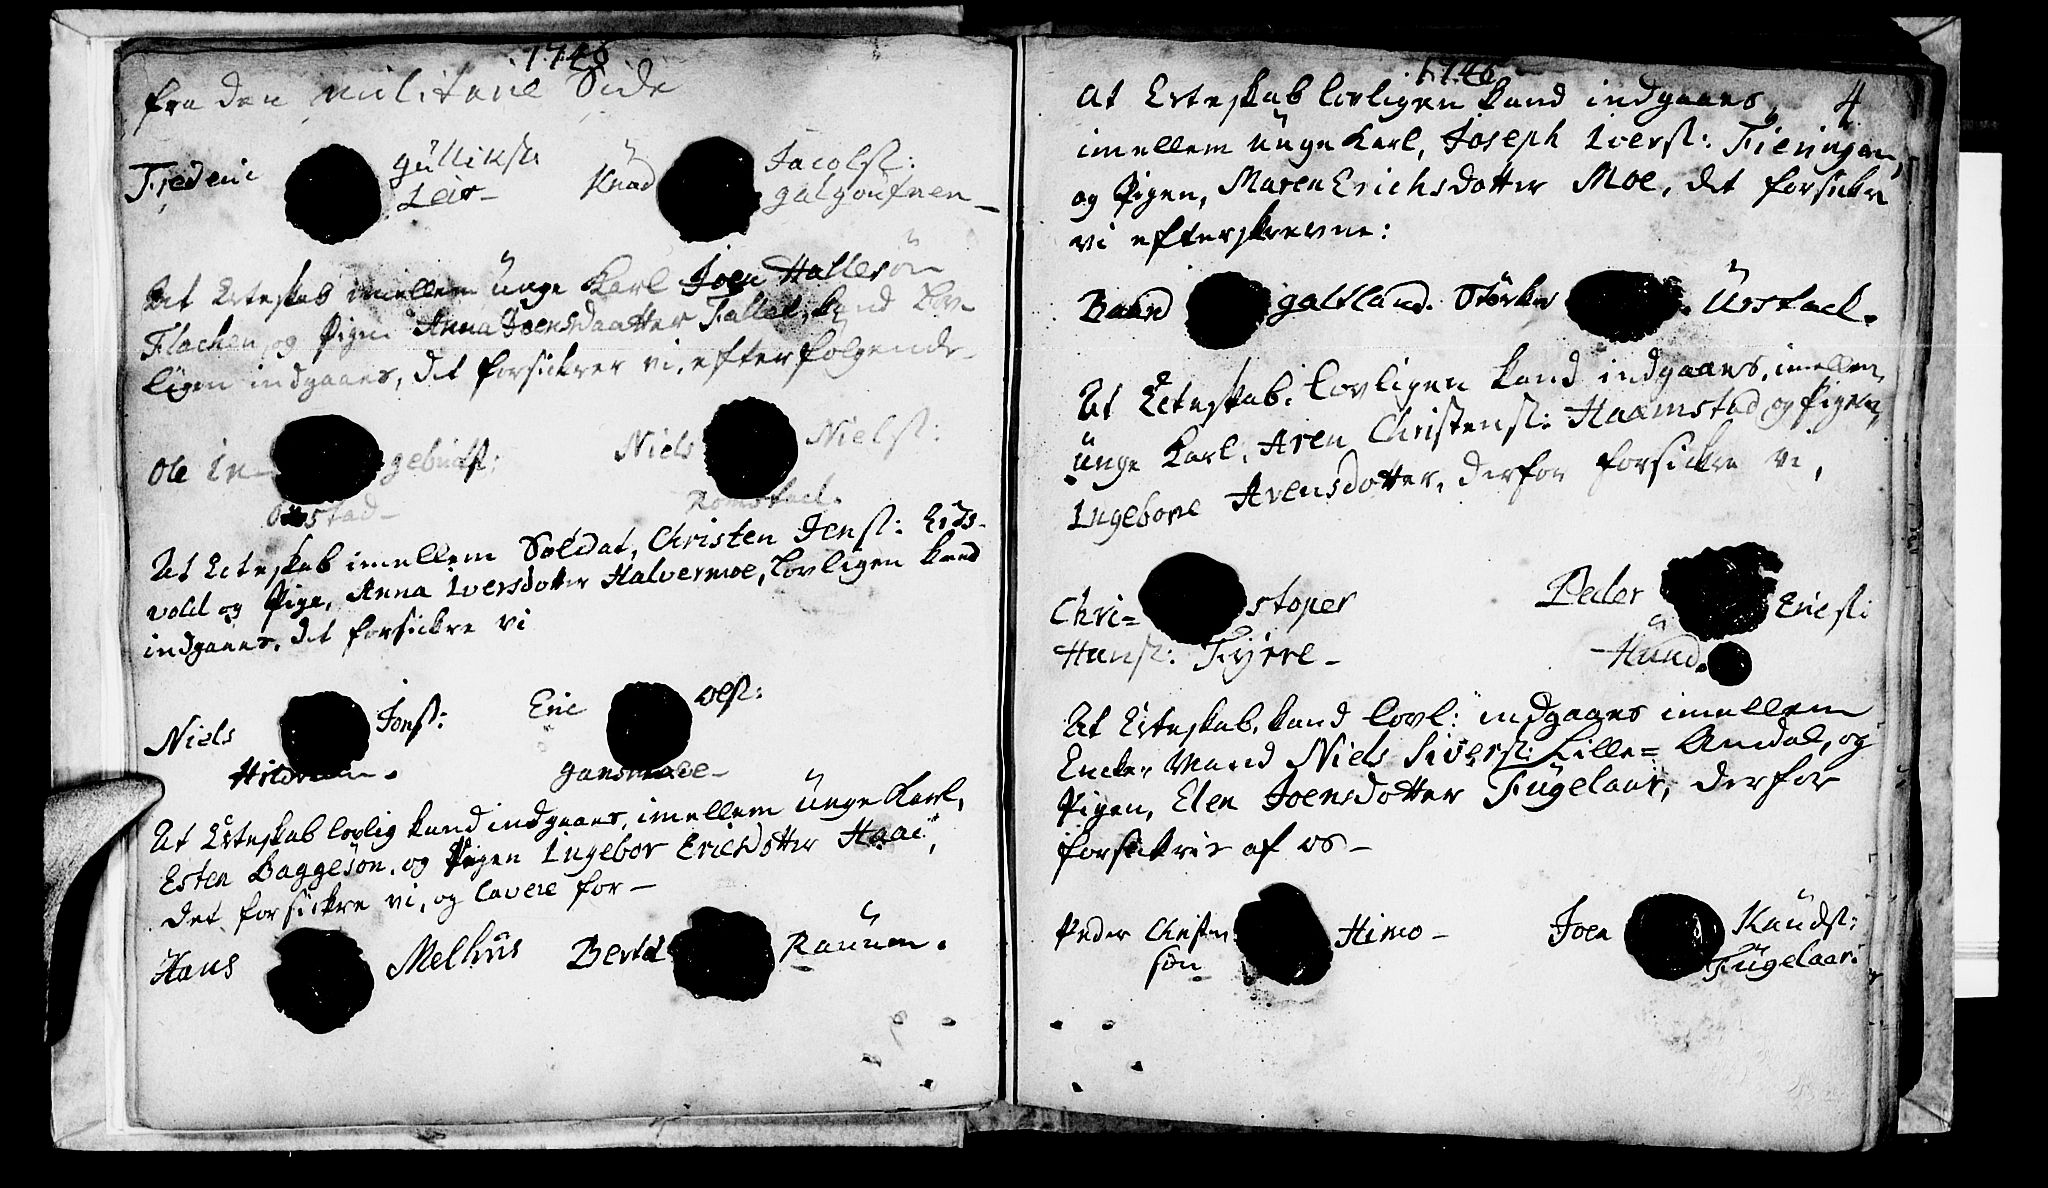 1746
fra den militaire Side
Frederic Gulliksn Knud Jacobsl:
Leer- galgoufnen-
At Ecteskab imellem unge Karl Joen Halleson
Flachen, og Pigen Anna Joensdaatter Fallet, kand Lov-
ligen indgaaes, det forsickrer vi, efterfølgende-
Ole In- gebrictsl: Niels Nielsl:
stad- Romstad.
At Ecteskab imellem Soldat, Christen Jensl: Eids-
vold og Pige, Anna Iversdotter Halvermoe, lovligen kand
indgaaes, det forsickre vi
Niels Jonsl: Eric Olsl:
At Ecteskab lovlig kand indgaaes, imellem unge Karl,
Esten Baggesøn, og Pigen Ingebor Ericsdotter Haae,
det forsickre vi, og cavere for-
Hans Melhus Bertel Raunen.
1746
At Ecteskab lovligen kand indgaaes, 4
imellem unge Karl, Joseph Iversl: Fieringen,
og Pigen, Maren Erichsdotter Moe, det forsickre
vi efterskrevne:
Baard galtland. Størker Urstad.
At Ecteskab, lovligen kand indgaaes, imellem
unge Karl, Aren Christensl: Haamstad og Pigen,
Ingebore Arensdotter, derfor forsickre vi,
Chri= stopher Peder Ericsl:
Hansl: Kyrre- Hund.
At Ecteskab, kand lovl: indgaaes imellem
Encke Mand Niels Siversl: Lille= Amdal, og
Pigen, Elen Joensdotter Fugelaas, derfor
forsickris af os-
Peder Christen Himo- Joen Knudsl:
søn Fugelaas: